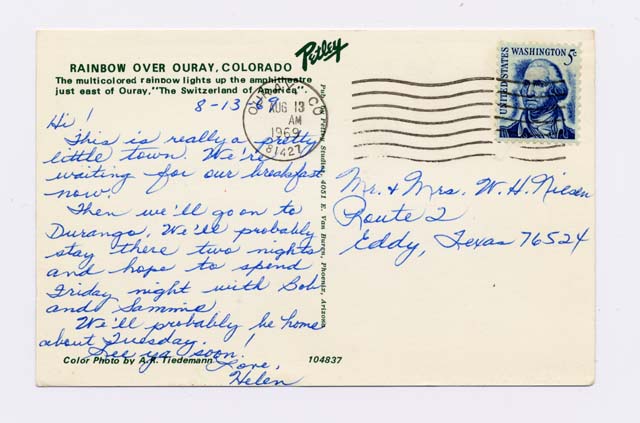 RAINBOW OVER OURAY, COLORADO
The multicolored rainbow lights up the amphitheatre
just east of Ouray, "The Switzerland of America".
Petley
8-13-69
Hi!
This is really a pretty
little town. We're
waiting for our breakfast
now.
Then we'll go on to
Durango. We'll probably
stay there two nights
and hope to spend
Friday night with Bob
and Sammie
We'll probably be home
about Tuesday.
See ya soon!
Love,
Helen
Color Photo by A.R. Tiedemann
104837
Pub. by Petley Studios, 4051 E. Van Buren, Phoenix, Arizona
OURAY, CO
AUG 13
AM
1969
81427
UNITED STATES
WASHINGTON 5c
Mr. & Mrs. W. H. Niesen
Route 2
Eddy, Texas 76524